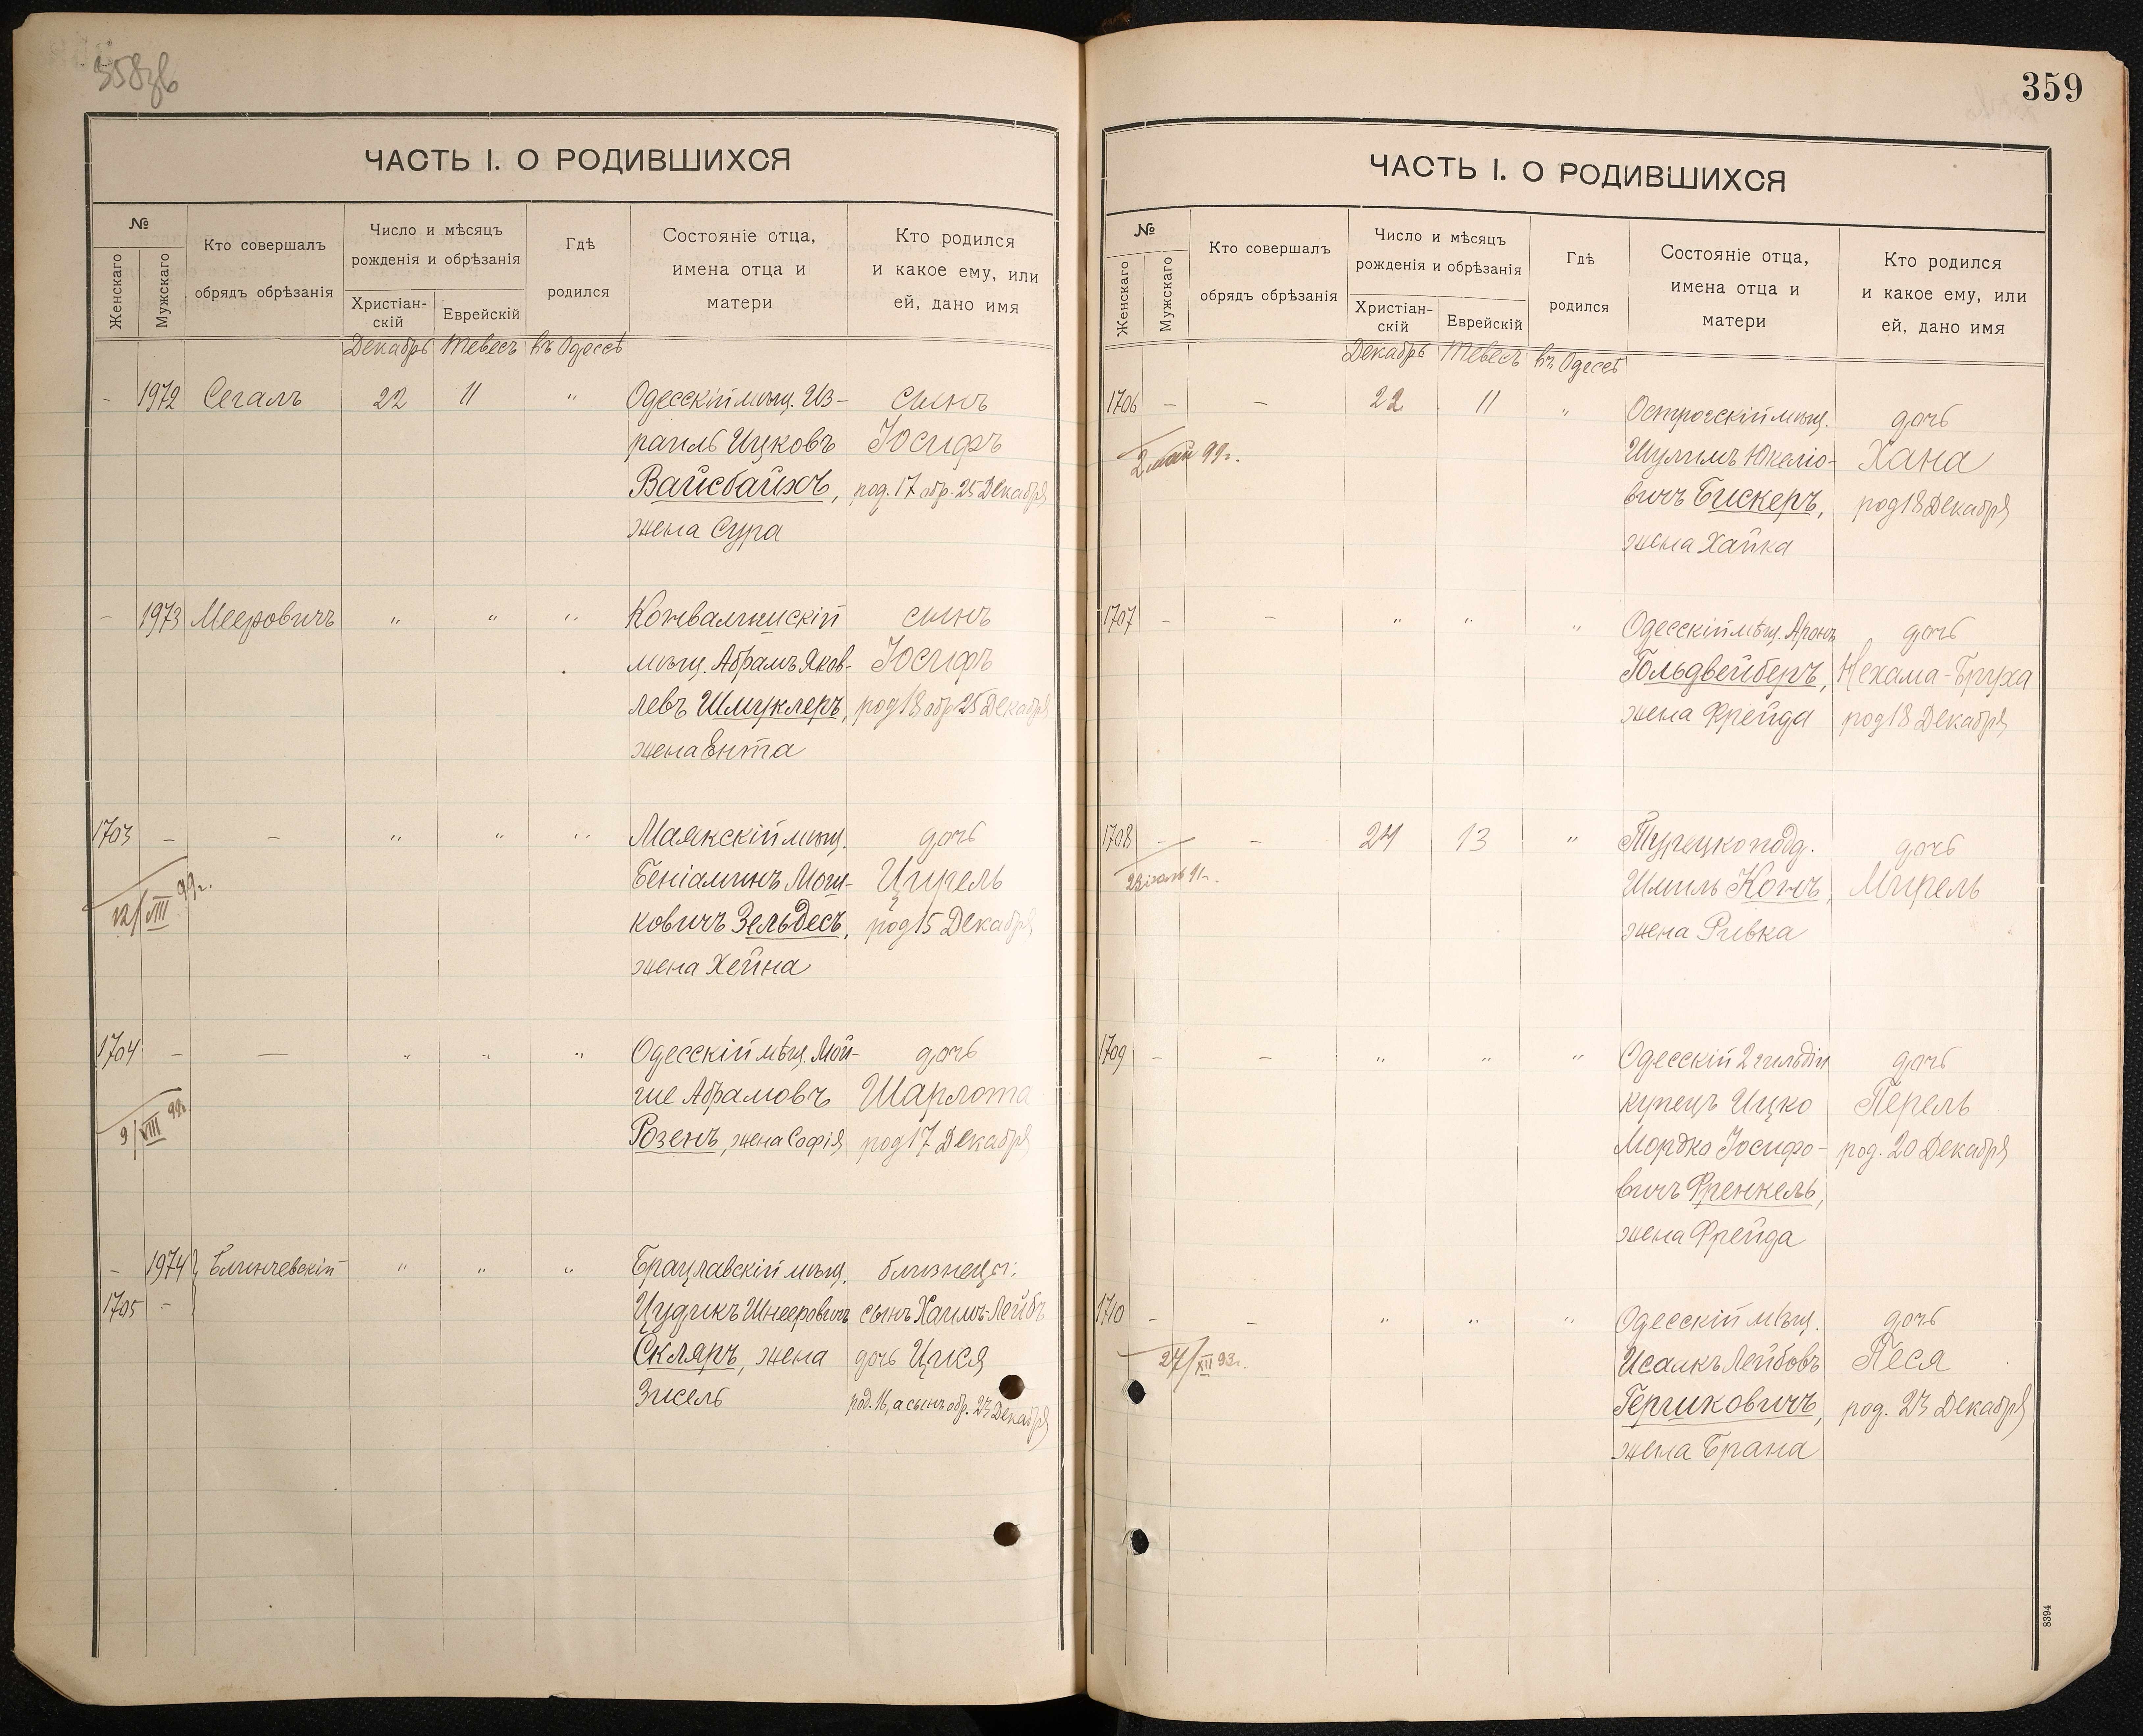 358зв
ЧАСТЬ I. О РОДИВШИХСЯ
№
Женскаго
Мужскаго
Кто совершалъ
обрядъ обрѣзанія
Число и мѣсяцъ
рожденія и обрѣзанія
Христіан-
скій
Еврейскій
Гдѣ
родился
Состояніе отца,
имена отца и
матери
Кто родился
и какое ему, или
ей, дано имя
Декабрь Тевесъ въ Одессѣ
- 1972 Сегалъ 22 11 " Одесскій мѣщ. Из- сынъ
раиль Ицковъ Іосифъ
Вайсбайхъ, род. 17 обр. 25 Декабря
жена Сура
- 1973 Мееровичъ " " " сынъ
мѣщ. Абрамъ Яков- Іосифъ
левъ Шмуклеръ, род 18 обр 25 Декабря
жена Ента
1703 - - " " " Маякскій мѣщ. дочь
Беніаминъ Мош- Ципель
ковичъ Зельдесъ, род 15 Декабря
жена Хейна
12/VIII 99г.
1704 - - " " " Одесскій мѣщ. Мой- дочь
ше Абрамовъ Шарлота
Розенъ, жена Софія род 17 Декабря
9/VIII 99г.
- 1974 Блинчевскій " " " Брацлавскій мѣщ. близнецы:
1705 - Цудикъ Шнееровичъ сынъ Хаимъ-Лейбъ
Скляръ, жена дочь Цися
Зисель род. 16, а сынъ обр. 23 Декабря
359
ЧАСТЬ I. О РОДИВШИХСЯ
№
Женскаго
Мужскаго
Кто совершалъ
обрядъ обрѣзанія
Число и мѣсяцъ
рожденія и обрѣзанія
Христіан-
скій
Еврейскій
Гдѣ
родился
Состояніе отца,
имена отца и
матери
Кто родился
и какое ему, или
ей, дано имя
Декабрь Тевесъ въ Одессѣ
1706 - - 22 11 " Острогскій мѣщ. дочь
Шулимъ Юкеліо- Хана
вичъ Бискеръ, род 18 Декабря
жена Хайка
2 май 99г.
1707 - - " " " Одесскій мѣщ. Аронъ дочь
Гольдвейберъ, Нехама-Бруха
жена Фрейда род 18 Декабря
1708 - - 24 13 " Турецкоподд. дочь
Шмиль Конъ, Мирель
жена Ривка
1709 - - " " " Одесскій 2 гильдіи дочь
купецъ Ицко Перель
Мордко Іосифо- род. 20 Декабря
вичъ Френкель,
жена Фрейда
1710 - - " " " Одесскій мѣщ. дочь
Исаакъ Лейбовъ Песя
Гершковичъ, род. 23 Декабря
жена Брана
27/XII 93г.
8394